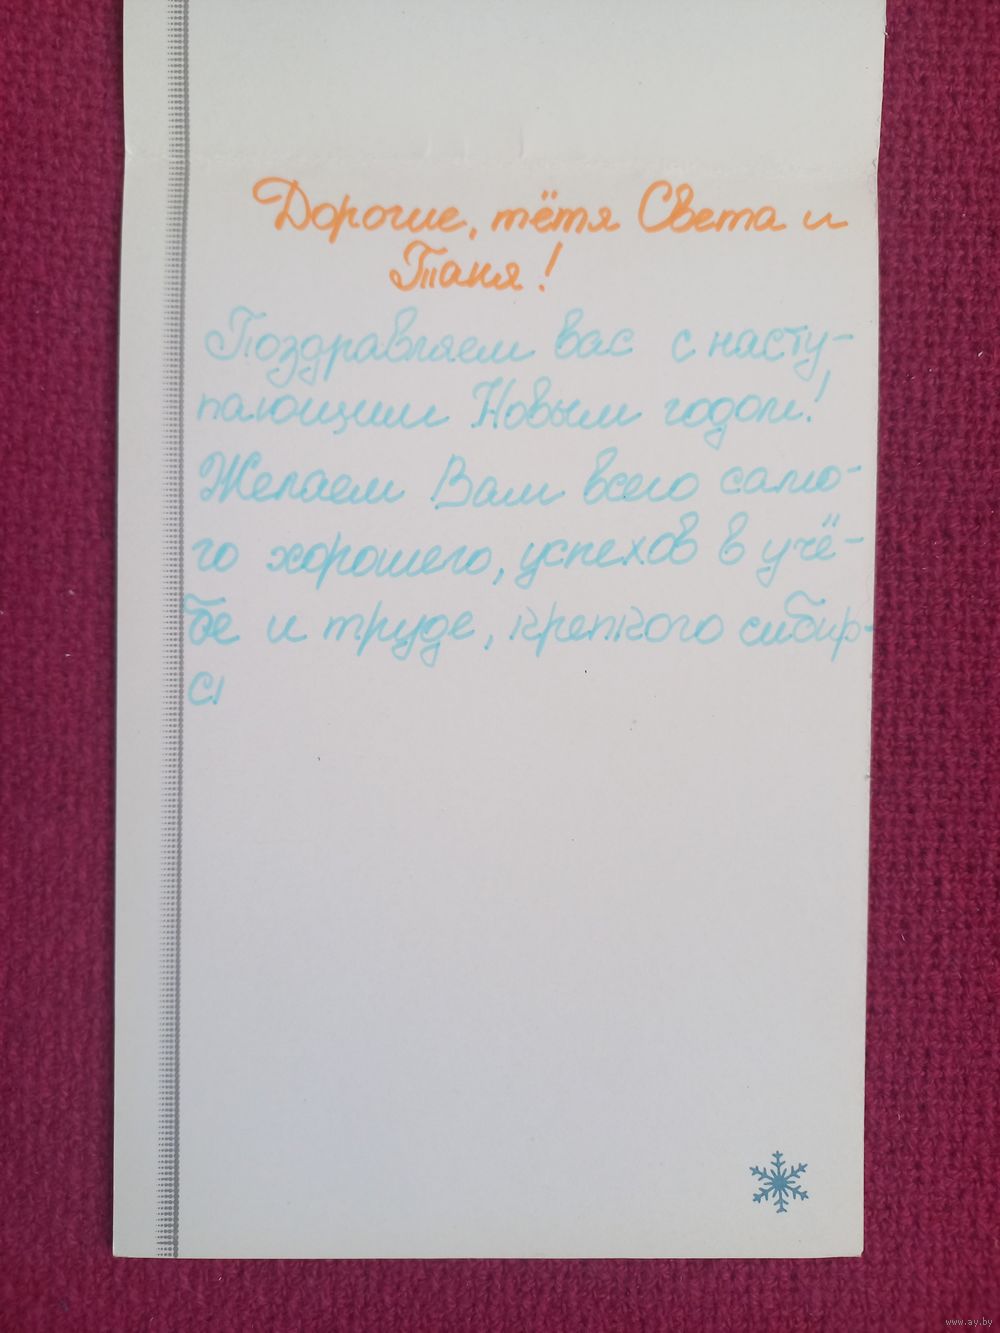 Дорогие, тётя Света и
Таня!
Поздравляем вас с насту-
пающим Новым годом!
Желаем Вам всего само-
го хорошего, успехов в учё-
бе и труде, крепкого сибир-
с
www.ay.by